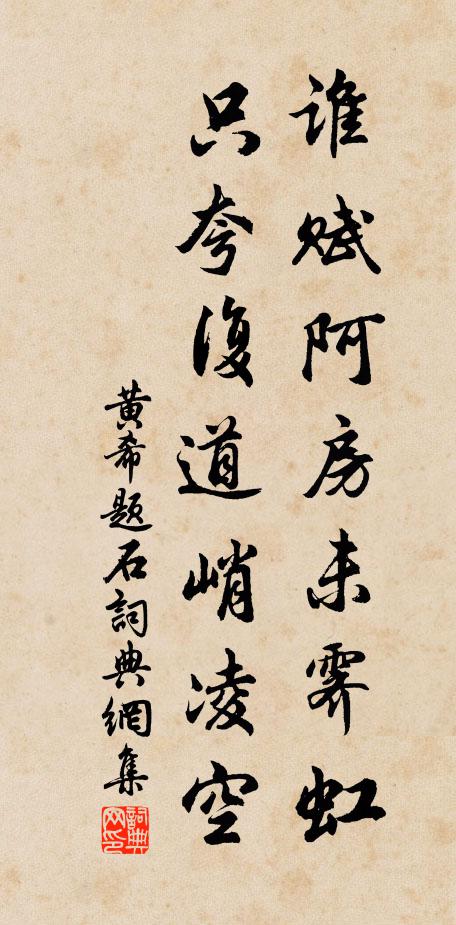 谁赋阿房未霁虹
只夸復道峭凌空
黄希题石詞典網集
詞典网印